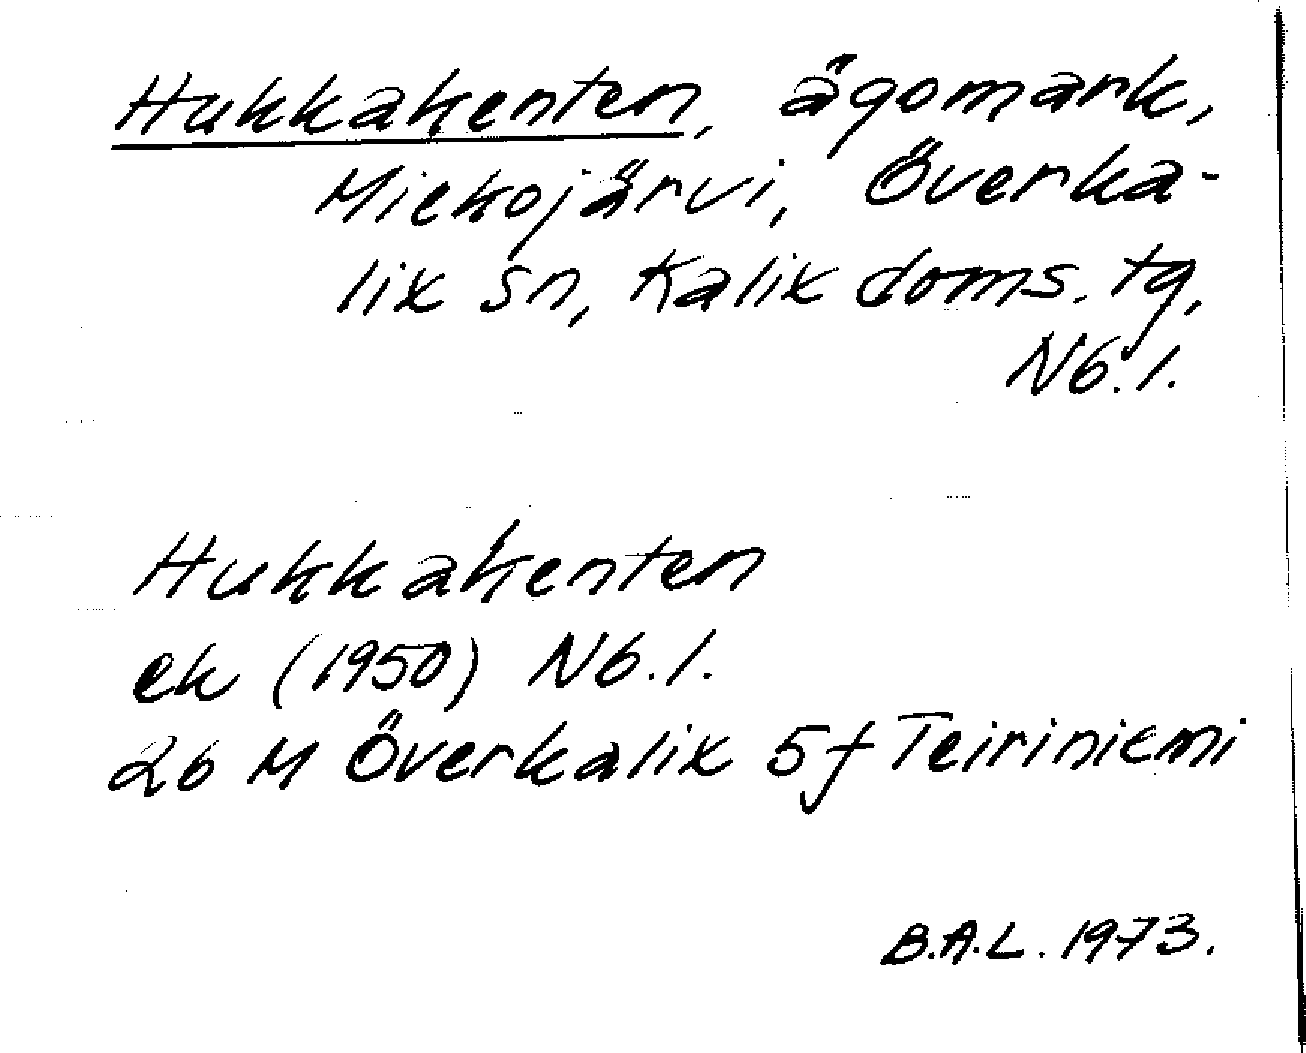 Hukkakenten, ägomark,
Miekojärvi, Överka-
lix sn, Kalix doms. tg,
Nb. l.
Hukkakenten
ek (1950) Nb. l.
26 M Överkalix 5f Teiriniemi
B.A.L. 1973.